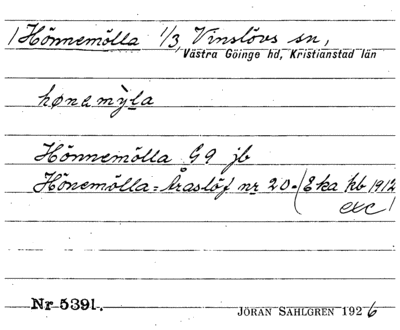 Hönnemölla 1/3, Vinslövs sn,
Västra Göinge hd, Kristianstad län
hønemỳla
Hönnemölla G9 jb
Hönemölla = Araslöf nr 20. (Eka kb 1912
exc)
Nr 5391.
JÖRAN SAHLGREN 1926